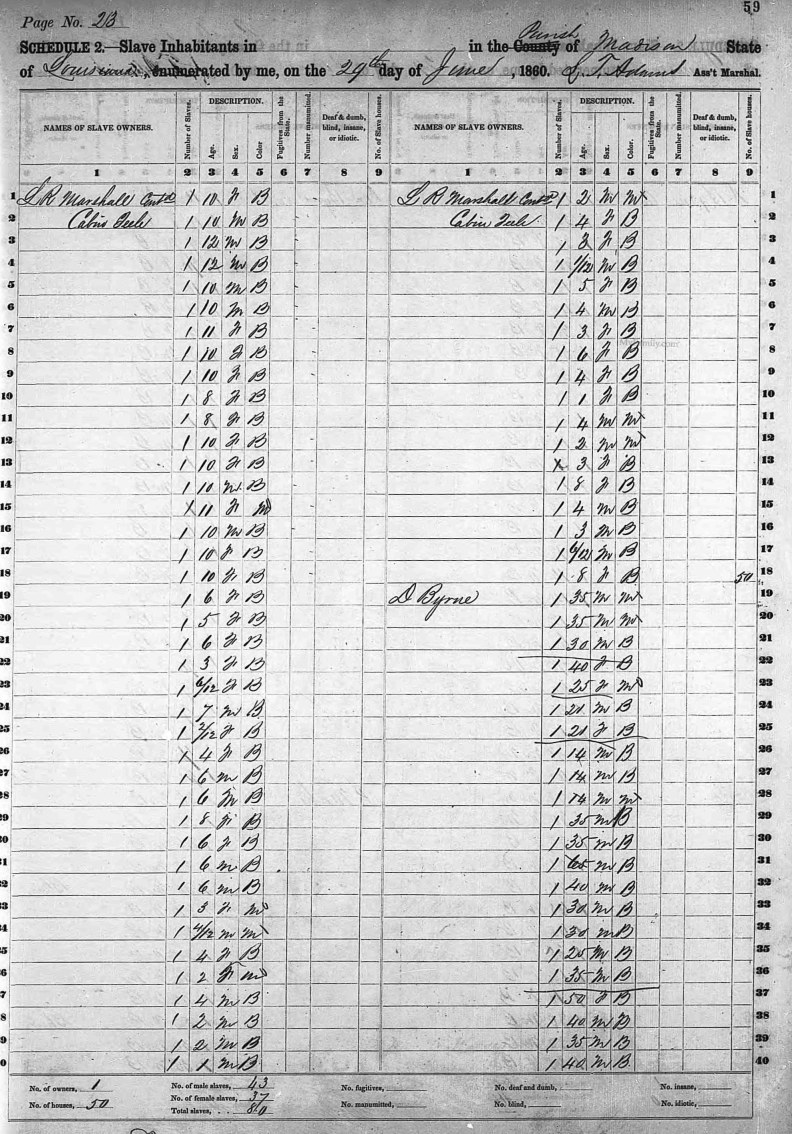 59
Page No. 23
SCHEDULE 2.—Slave Inhabitants in in the County Parish of Madison State
of Louisiana, enumerated by me, on the 29th day of June, 1860. L. T. Adams Ass't Marshal.
NAMES OF SLAVE OWNERS. Number of Slaves. DESCRIPTION. Age. Sex. Color Fugitives from the State. Number manumitted. Deaf & dumb, blind, insane, or idiotic. No. of Slave houses. NAMES OF SLAVE OWNERS. Number of Slaves. DESCRIPTION. Age. Sex. Color. Fugitives from the State. Number manumitted. Deaf & dumb, blind, insane, or idiotic. No. of Slave houses.
1 2 3 4 5 6 7 8 9 1 2 3 4 5 6 7 8 9
1 L R Marshall 1 10 F B L R Marshall 1 2 M M 1
2 1 10 M B 1 4 F B 2
3 1 12 M B 1 F B 3
4 1 12 M B 1 1/12 M B 4
5 1 10 M B 1 5 F B 5
6 1 10 M B 1 4 M B 6
7 1 11 F B 1 3 F B 7
8 1 10 F B 1 6 F B 8
9 1 10 F B 1 4 F B 9
10 1 8 F B 1 1 F B 10
11 1 8 F B 1 4 M M 11
12 1 10 F B 1 2 M M 12
13 1 10 F B 1 3 F B 13
14 1 10 M B 1 8 F B 14
15 1 11 F M 1 4 M B 15
16 1 10 M B 1 3 M B 16
17 1 10 F B 1 6/12 M B 17
18 1 10 F B 1 8 F B 50 18
19 1 6 F B D Byrne 1 35 M M 19
20 1 5 F B 1 35 M M 20
21 1 6 F B 1 30 M B 21
22 1 3 F B 1 40 F B 22
23 1 6/12 F B 1 25 F M 23
24 1 7 M B 1 21 M B 24
25 1 2/12 F B 1 21 F B 25
26 1 4 F B 1 14 M B 26
27 1 6 M B 1 14 M B 27
28 1 6 M B 1 14 M M 28
29 1 8 F B 1 35 M B 29
30 1 6 F B 1 35 M B 30
31 1 6 M B 1 65 M B 31
32 1 6 M B 1 40 M B 32
33 1 3 F M 1 30 M B 33
34 1 4/12 M M 1 30 M B 34
35 1 4 F B 1 25 M B 35
36 1 2 F M 1 35 M B 36
37 1 4 M B 1 50 F B 37
38 1 2 M B 1 40 M B 38
39 1 2 M B 1 35 M B 39
40 1 1 M B 1 40 M B 40
No. of owners, 1 No. of male slaves, 43 No. fugitives, No. deaf and dumb, No. insane,
No. of houses, 50 No. of female slaves, 37 No. manumitted, No. blind, No. idiotic,
Total slaves, 80